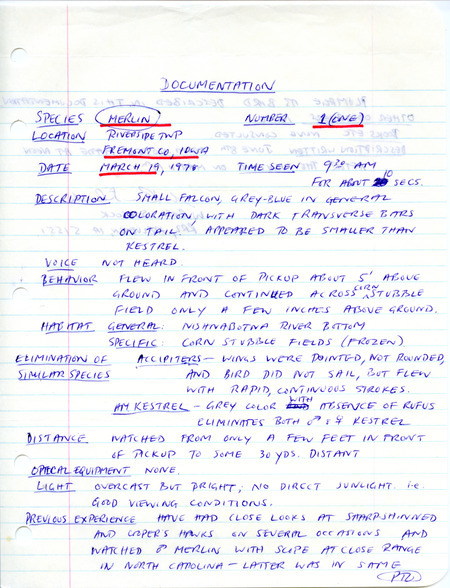 DOCUMENTATION
SPECIES MERLIN NUMBER 1 (ONE)
LOCATION RIVERSIDE TWP
FREMONT CO, IOWA
DATE MARCH 19, 1978 TIME SEEN 9:30 AM
FOR ABOUT 10 SECS.
DESCRIPTION SMALL FALCON, GREY-BLUE IN GENERAL
COLORATION, WITH DARK TRANSVERSE BARS
ON TAIL. APPEARED TO BE SMALLER THAN
KESTREL.
VOICE NOT HEARD.
BEHAVIOR FLEW IN FRONT OF PICKUP ABOUT 5' ABOVE
GROUND AND CONTINUED ACROSS CORN STUBBLE
FIELD ONLY A FEW INCHES ABOVE GROUND.
HABITAT GENERAL: NISHNABOTNA RIVER BOTTOM
SPECIFIC: CORN STUBBLE FIELDS (FROZEN)
ELIMINATION OF ACCIPITERS - WINGS WERE POINTED, NOT ROUNDED,
SIMILAR SPECIES AND BIRD DID NOT SAIL, BUT FLEW
WITH RAPID, CONTINUOUS STROKES.
AM KESTREL - GREY COLOR WITH ABSENCE OF RUFUS
ELIMINATES BOTH ♂ & ♀ KESTREL
DISTANCE WATCHED FROM ONLY A FEW FEET IN FRONT
OF PICKUP TO SOME 30 YDS. DISTANT
OPTICAL EQUIPMENT NONE.
LIGHT OVERCAST BUT BRIGHT; NO DIRECT SUNLIGHT. i.e.
GOOD VIEWING CONDITIONS.
PREVIOUS EXPERIENCE HAVE HAD CLOSE LOOKS AT SHARPSHINNED
AND COOPERS HAWKS ON SEVERAL OCCASIONS AND
WATCHED ♂ MERLIN WITH SCOPE AT CLOSE RANGE
IN NORTH CAROLINA - LATTER WAS IN SAME
PTO